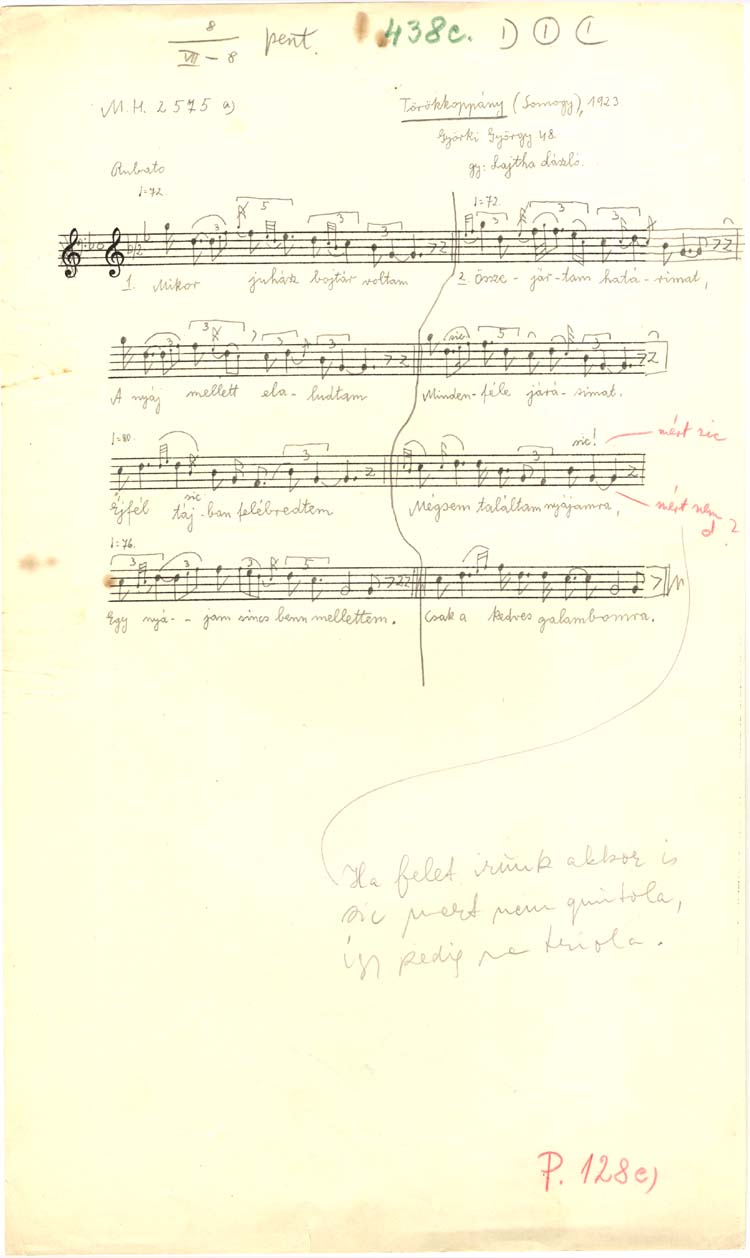 8
VII – 8 pent. 438c.
M.H. 2575 a) Törökkoppány (Somogy), 1923
Györki György 48
gy: Lajtha László.
Rubato
=72. =72.
5 3 3 3 3 3 3
1. Mikor juhász bojtár voltam 2. Össze - jár - tam hatá - rimat,
3 3 3 sic 5 3
A nyáj mellett ela - ludtam Minden - féle járá - simat.
=80. 3 3 sic! mért sic
sic
Éjfél táj - ban felébredtem Mégsem találtam nyájamra, mért nem d ?
=76.
3 3 3 5
Egy nyá - - jam sincs benn mellettem. Csak a kedves galambomra.
Ha felet irunk akkor is
sic mert nem quintola,
így pedig ne triola.
P. 128c)